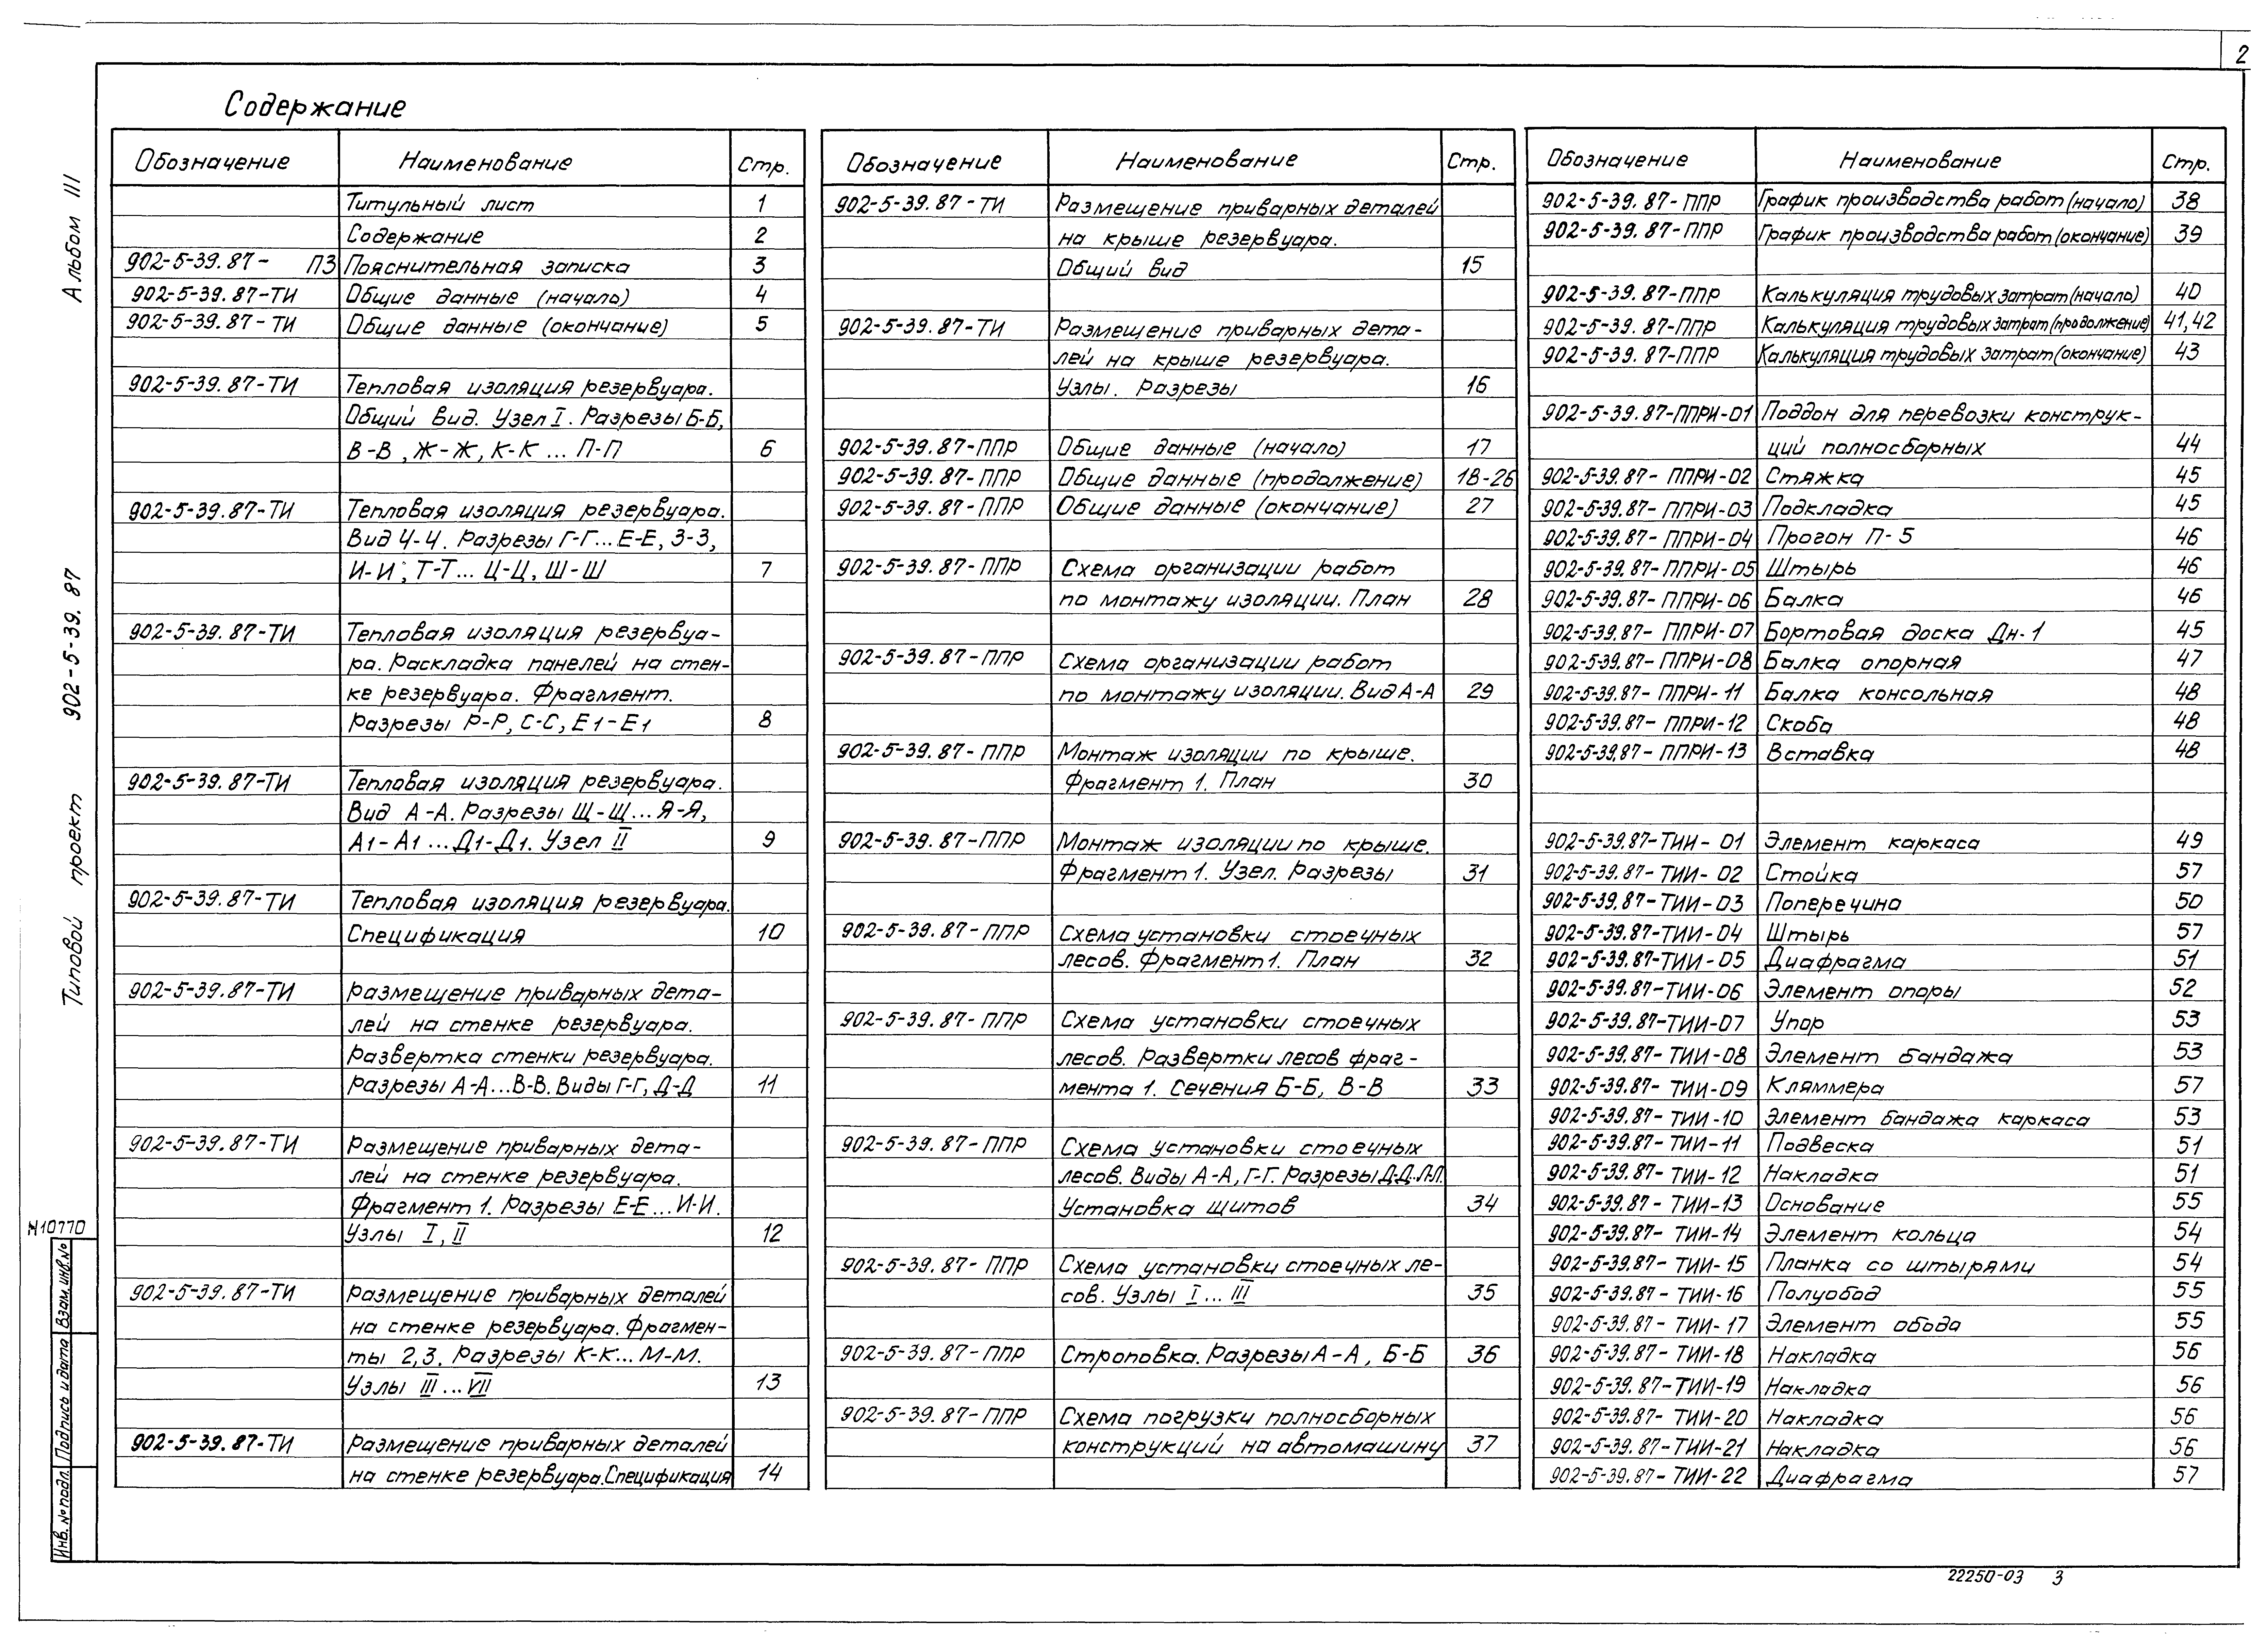 2
Содержание
Обозначение Наименование Стр.
Титульный лист 1
Содержание 2
902-5-39.87- ПЗ Пояснительная записка 3
902-5-39.87-ТИ Общие данные (начало) 4
902-5-39.87-ТИ Общие данные (окончание) 5
902-5-39.87-ТИ Тепловая изоляция резервуара.
Общий вид. Узел I. Разрезы Б-Б,
В-В, Ж-Ж, К-К ... П-П 6
902-5-39.87-ТИ Тепловая изоляция резервуара.
Вид Ч-Ч. Разрезы Г-Г...Е-Е, З-З,
И-И, Т-Т... Ц-Ц, Ш-Ш 7
902-5-39.87-ТИ Тепловая изоляция резервуа-
ра. Раскладка панелей на стен-
ке резервуара. Фрагмент.
Разрезы Р-Р, С-С, Е1-Е1 8
902-5-39.87-ТИ Тепловая изоляция резервуара.
Вид А-А. Разрезы Щ-Щ...Я-Я,
А1-А1...Д1-Д1. Узел II 9
902-5-39.87-ТИ Тепловая изоляция резервуара.
Спецификация 10
902-5-39.87-ТИ Размещение приварных дета-
лей на стенке резервуара.
Развертка стенки резервуара.
Разрезы А-А...В-В. Виды Г-Г, Д-Д 11
902-5-39.87-ТИ Размещение приварных дета-
лей на стенке резервуара.
Фрагмент 1. Разрезы Е-Е...И-И.
Узлы I, II 12
902-5-39.87-ТИ Размещение приварных деталей
на стенке резервуара. Фрагмен-
ты 2,3. Разрезы К-К...М-М.
Узлы III...VII 13
902-5-39.87-ТИ Размещение приварных деталей
на стенке резервуара. Спецификация 14
Обозначение Наименование Стр.
902-5-39.87-ТИ Размещение приварных деталей
на крыше резервуара.
Общий вид 15
902-5-39.87-ТИ Размещение приварных дета-
лей на крыше резервуара.
Узлы. Разрезы 16
902-5-39.87-ППР Общие данные (начало) 17
902-5-39.87-ППР Общие данные (продолжение) 18-26
902-5-39.87-ППР Общие данные (окончание) 27
902-5-39.87-ППР Схема организации работ
по монтажу изоляции. План 28
902-5-39.87-ППР Схема организации работ
по монтажу изоляции. Вид А-А 29
902-5-39.87-ППР Монтаж изоляции по крыше.
Фрагмент 1. План 30
902-5-39.87-ППР Монтаж изоляции по крыше.
Фрагмент 1. Узел. Разрезы 31
902-5-39.87-ППР Схема установки стоечных
лесов. Фрагмент 1. План 32
902-5-39.87-ППР Схема установки стоечных
лесов. Развертки лесов фраг-
мента 1. Сечения Б-Б, В-В 33
902-5-39.87-ППР Схема установки стоечных
лесов. Виды А-А, Г-Г. Разрезы Д-Д...Л-Л.
Установка щитов 34
902-5-39.87-ППР Схема установки стоечных ле-
сов. Узлы I...III 35
902-5-39.87-ППР Строповка. Разрезы А-А, Б-Б 36
902-5-39.87-ППР Схема погрузки полносборных
конструкций на автомашину 37
Обозначение Наименование Стр.
902-5-39.87-ППР График производства работ (начало) 38
902-5-39.87-ППР График производства работ (окончание) 39
902-5-39.87-ППР Калькуляция трудовых затрат (начало) 40
902-5-39.87-ППР Калькуляция трудовых затрат (продолжение) 41,42
902-5-39.87-ППР Калькуляция трудовых затрат (окончание) 43
902-5-39.87-ППРИ-01 Поддон для перевозки конструк-
ций полносборных 44
902-5-39.87-ППРИ-02 Стяжка 45
902-5-39.87-ППРИ-03 Подкладка 45
902-5-39.87-ППРИ-04 Прогон П-5 46
902-5-39.87-ППРИ-05 Штырь 46
902-5-39.87-ППРИ-06 Балка 46
902-5-39.87-ППРИ-07 Бортовая доска Дн-1 45
902-5-39.87-ППРИ-08 Балка опорная 47
902-5-39.87-ППРИ-11 Балка консольная 48
902-5-39.87-ППРИ-12 Скоба 48
902-5-39.87-ППРИ-13 Вставка 48
902-5-39.87-ТИИ-01 Элемент каркаса 49
902-5-39.87-ТИИ-02 Стойка 57
902-5-39.87-ТИИ-03 Поперечина 50
902-5-39.87-ТИИ-04 Штырь 57
902-5-39.87-ТИИ-05 Диафрагма 51
902-5-39.87-ТИИ-06 Элемент опоры 52
902-5-39.87-ТИИ-07 Упор 53
902-5-39.87-ТИИ-08 Элемент бандажа 53
902-5-39.87-ТИИ-09 Кляммера 57
902-5-39.87-ТИИ-10 Элемент бандажа каркаса 53
902-5-39.87-ТИИ-11 Подвеска 51
902-5-39.87-ТИИ-12 Накладка 51
902-5-39.87-ТИИ-13 Основание 55
902-5-39.87-ТИИ-14 Элемент кольца 54
902-5-39.87-ТИИ-15 Планка со штырями 54
902-5-39.87-ТИИ-16 Полуобод 55
902-5-39.87-ТИИ-17 Элемент обода 55
902-5-39.87-ТИИ-18 Накладка 56
902-5-39.87-ТИИ-19 Накладка 56
902-5-39.87-ТИИ-20 Накладка 56
902-5-39.87-ТИИ-21 Накладка 56
902-5-39.87-ТИИ-22 Диафрагма 57
Типовой проект 902-5-39.87 Альбом III
Н10770
Инв. № подл. Подпись и дата Взам. инв. №
22250-03 3